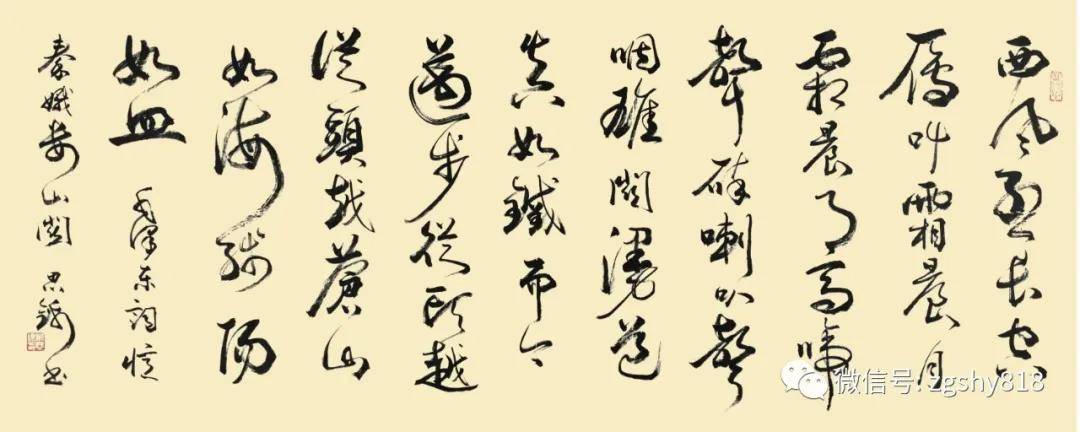 西风烈长空
雁叫霜晨月
霜晨月马蹄
聲碎喇叭聲
咽雄関漫道
真如鐵而今
邁步從头越
從頭越蒼山
如海残阳
如血 毛泽东词忆
秦娥娄山関 书
微信号: zgshy818